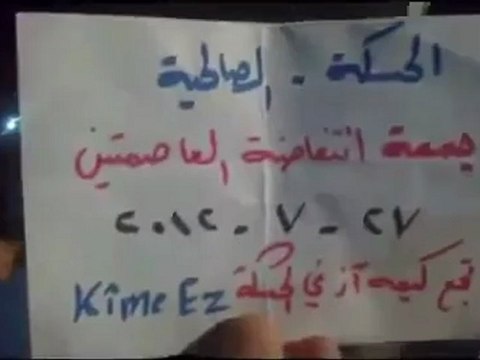 الحسكة - الصالحية
جمعة انتفاضة العاصمتين
٢٧ - ٧ - ٢٠١٢
تجمع كيمه آز في الحسكة Kîme Ez